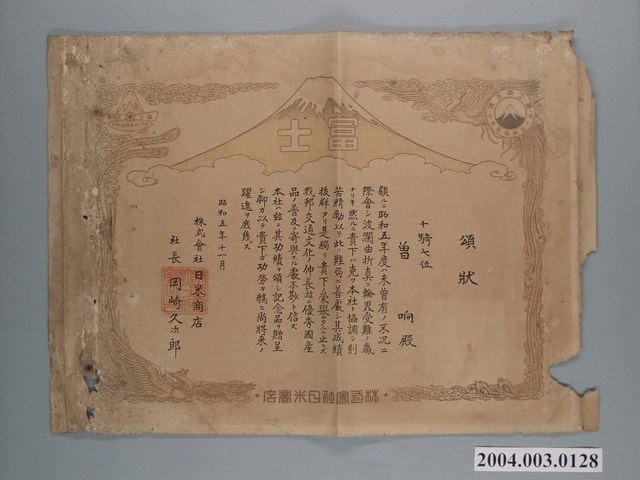 富士
頌狀
十騎七位
曽 响殿
顧ルニ昭和五年度ハ未曾有ノ不況ニ
際會シ波瀾曲折真ニ輪界受難ノ歳
ナリキ然ルニ貴下ハ克ク本社ト協調シ刻
苦精勵以テ此ノ難局ニ善處シ其成績
拔群タリ是獨リ貴下ノ榮譽タルニ止ラズ
我邦交通文化ノ伸長並ニ優秀國産
品ノ普及ニ寄與スル處不尠ト信ズ
本社ハ茲ニ其功績ヲ頌シ記念品ヲ贈呈
シ聊カ以テ貴下ガ功勞ヲ犒ヒ尚將來ノ
躍進ヲ庶幾ス
昭和五年十一月
株式會社日米商店
社長 岡崎久次郎
株式會社日米商店
2004.003.0128